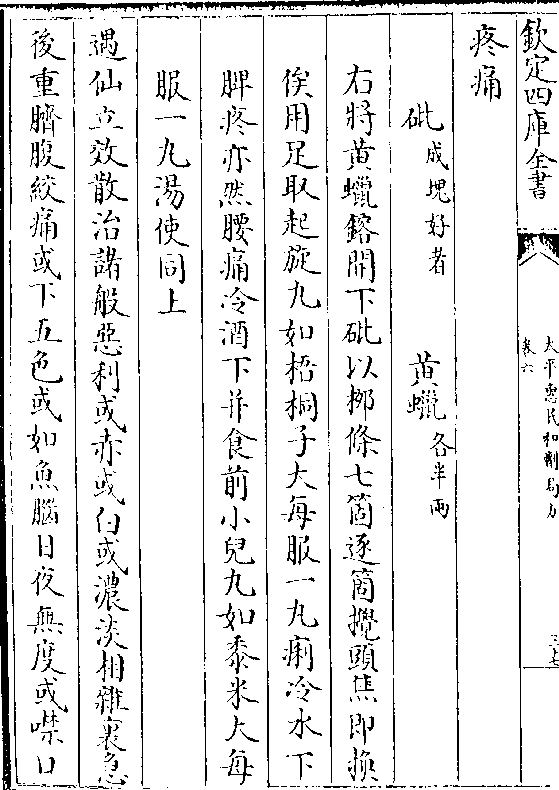 欽定四庫全書
太平惠民和劑局方
卷六
三十七
疼痛
砒成塊好者 黄蠟各半兩
右將黄蠟鎔開下砒以栁條七箇逐箇攪頭焦即換
俟用足取起旋丸如梧桐子大每服一丸痢冷水下
脾疼亦然腰痛冷酒下并食前小兒丸如黍米大每
服一丸湯使同上
遇仙立效散治諸般惡利或赤或白或濃淡相雜裏急
後重臍腹絞痛或下五色或如魚腦日夜無度或噤口